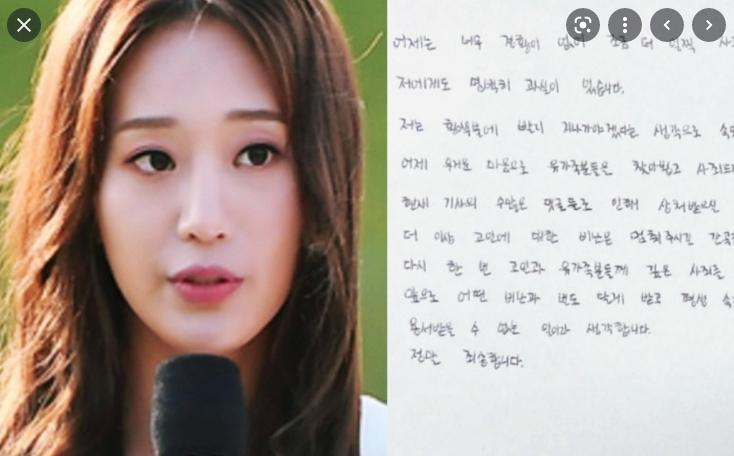 어제는 너무 경황이 없어 조금 더 일찍
저에게도 명백히 과실이 있습니다.
저는 황색불에 빨리 지나가야겠다는 생각으로
어제 무거운 마음으로 유가족분들을 찾아뵙고
현재 기사의 수많은 댓글들로 인해 상처받으신
더 이상 고인에 대한 비난은 멈춰주시길
다시 한 번 고인과 유가족분들께 깊은 사죄를
앞으로 어떤 비난과 벌도 달게 받고 평생
용서받을 수 없는 일이라 생각합니다.
정말 죄송합니다.